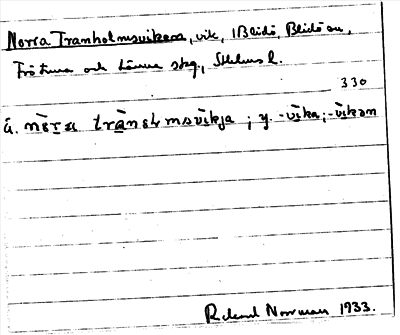 Norra Tranholmsviken, vik, i Blidö, Blidö sn,
Frötuna och Länna skg., Sthlms l.
330
ä. nɷ̄ra tränsłmsvikja ; y. -vīka; -vīkən
Rickard Norrman 1933.